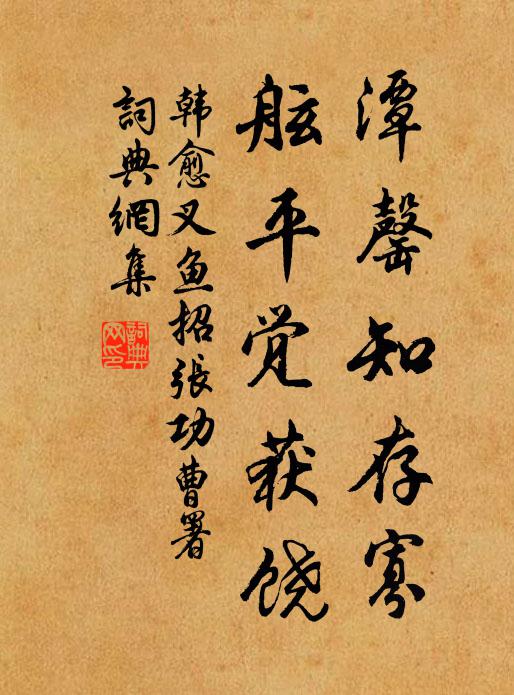 潭罄知存寡
舷平觉获饶
韩愈叉鱼招張功曹署
詞典網集
詞典网印